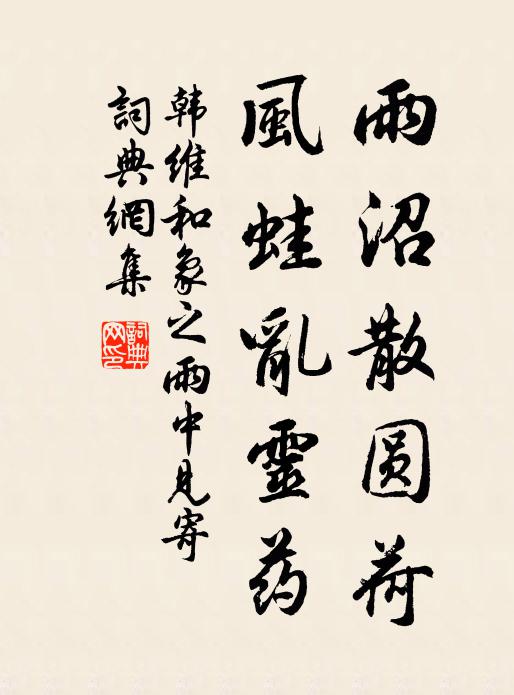 雨沼散圆荷
風蛙亂靈药
韩維和象之雨中見寄
詞典網集
詞典网印